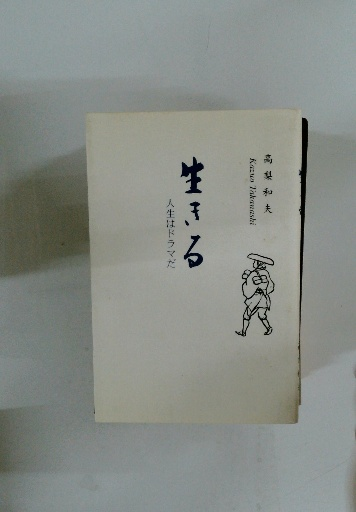 高梨和夫
Kazuo Takanashi
生きる
人生はドラマだ